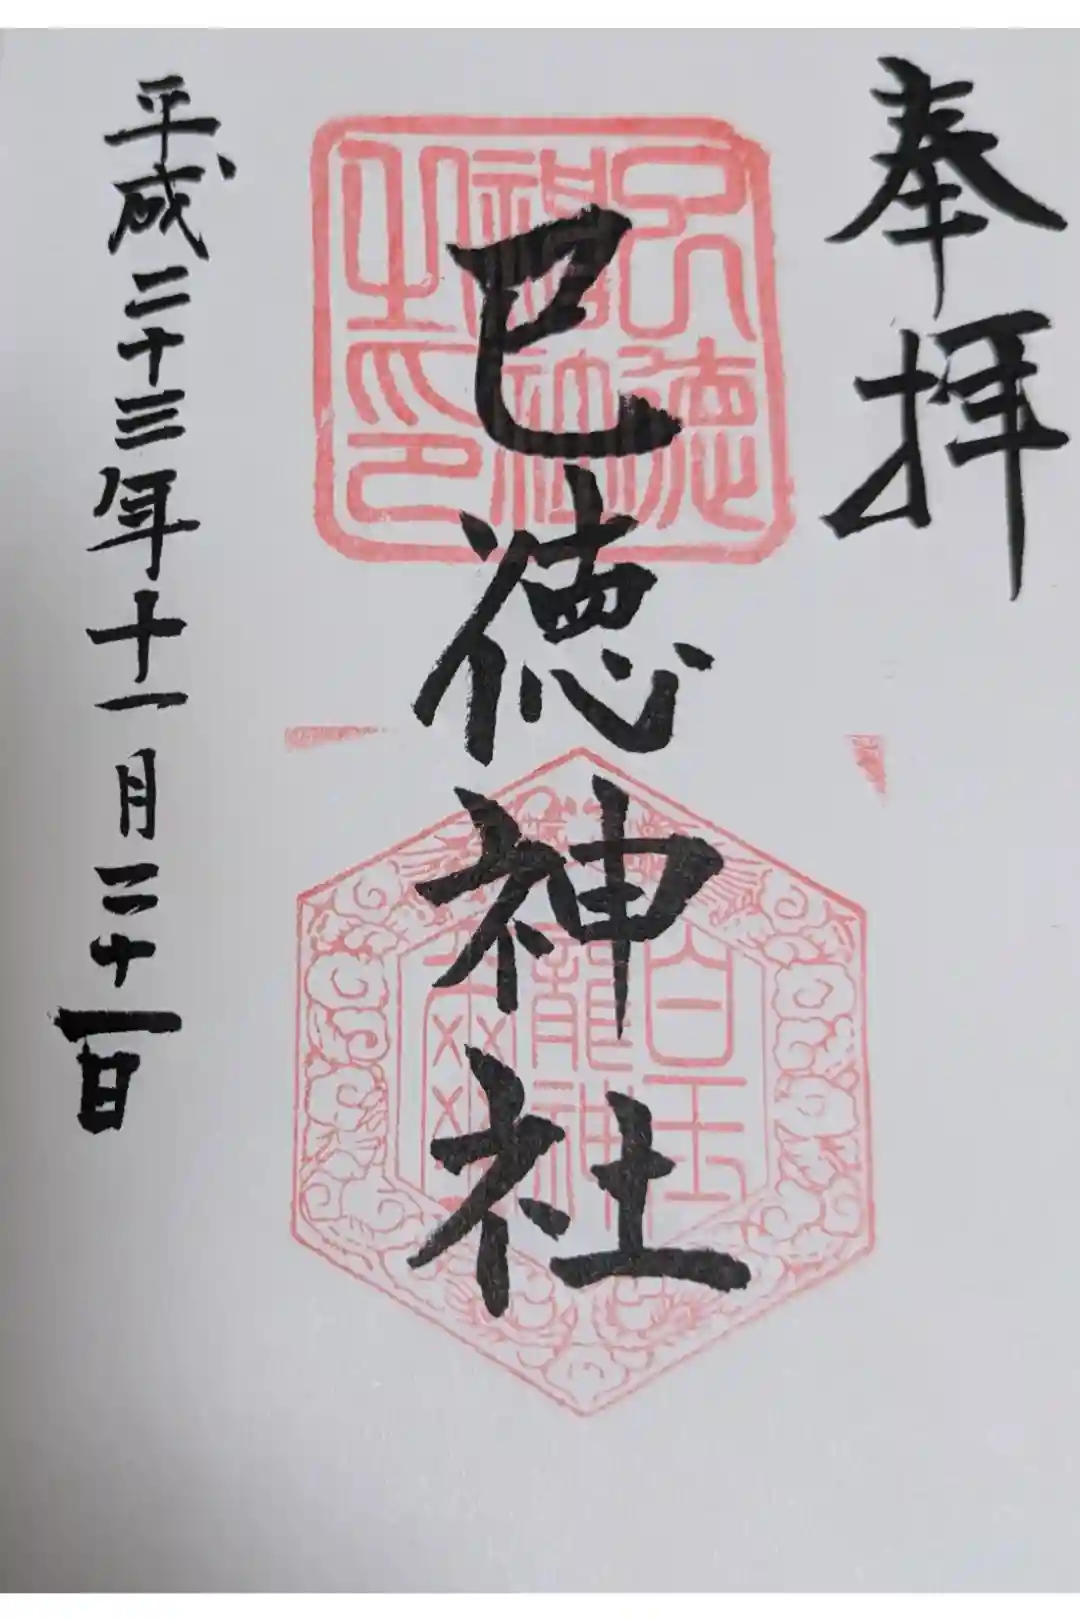 奉拝
巳徳神社
平成二十三年十一月二十一日
白玉
龍神
之印